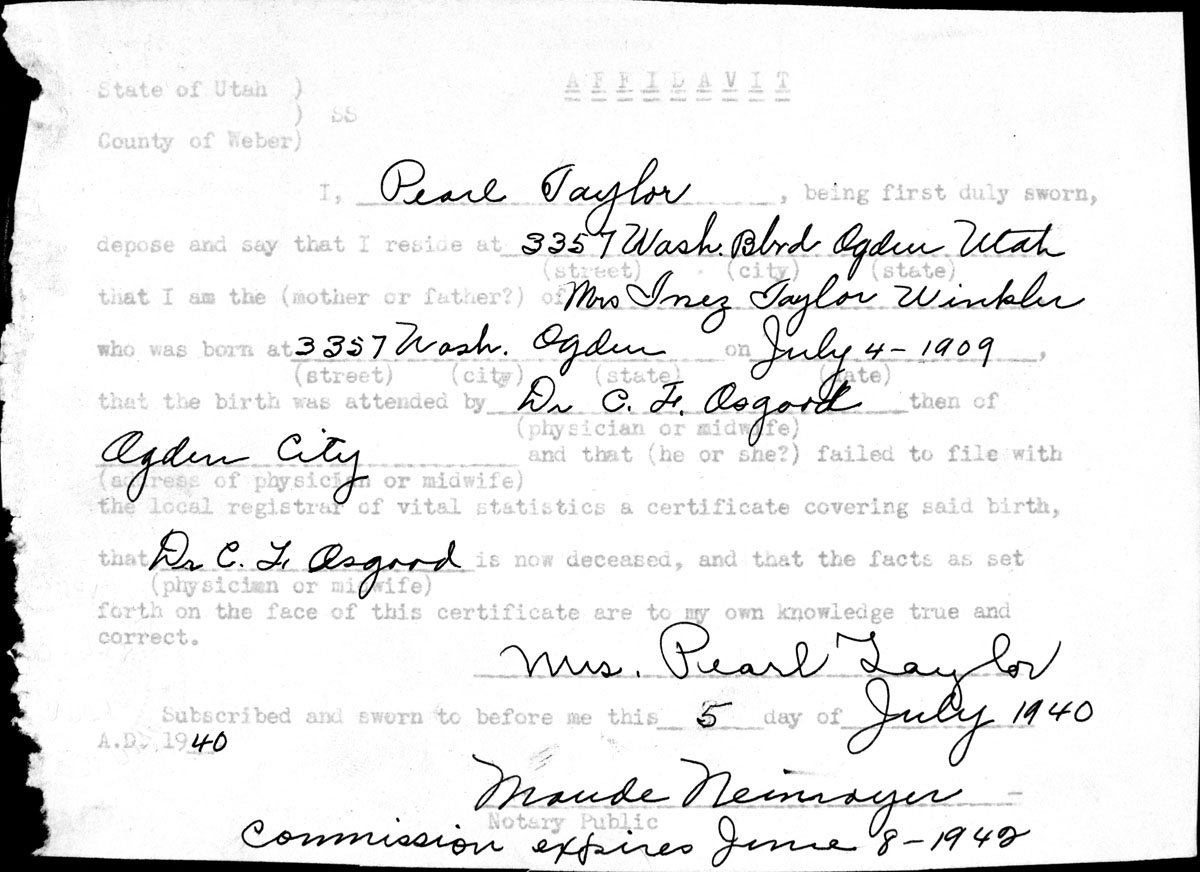 AFFIDAVIT
State of Utah )
) SS
County of Weber)
I, Pearl Taylor, being first duly sworn,
depose and say that I reside at 3357 Wash. Blvd Ogden Utah
(street) (city) (state)
that I am the (mother or father?) of Mrs Inez Taylor Winkler
who was born at 3357 Wash. Ogden on July 4-1909,
(street) (city) (state) (date)
that the birth was attended by Dr C. F. Osgood then of
(physician or midwife)
Ogden City and that (he or she?) failed to file with
(address of physician or midwife)
the local registrar of vital statistics a certificate covering said birth,
that Dr C. F. Osgood is now deceased, and that the facts as set
(physician or midwife)
forth on the face of this certificate are to my own knowledge true and
correct.
Mrs. Pearl Taylor
Subscribed and sworn to before me this 5 day of July 1940
A.D. 1940
Maude Neimoyer
Notary Public
Commission expires June 8-1942